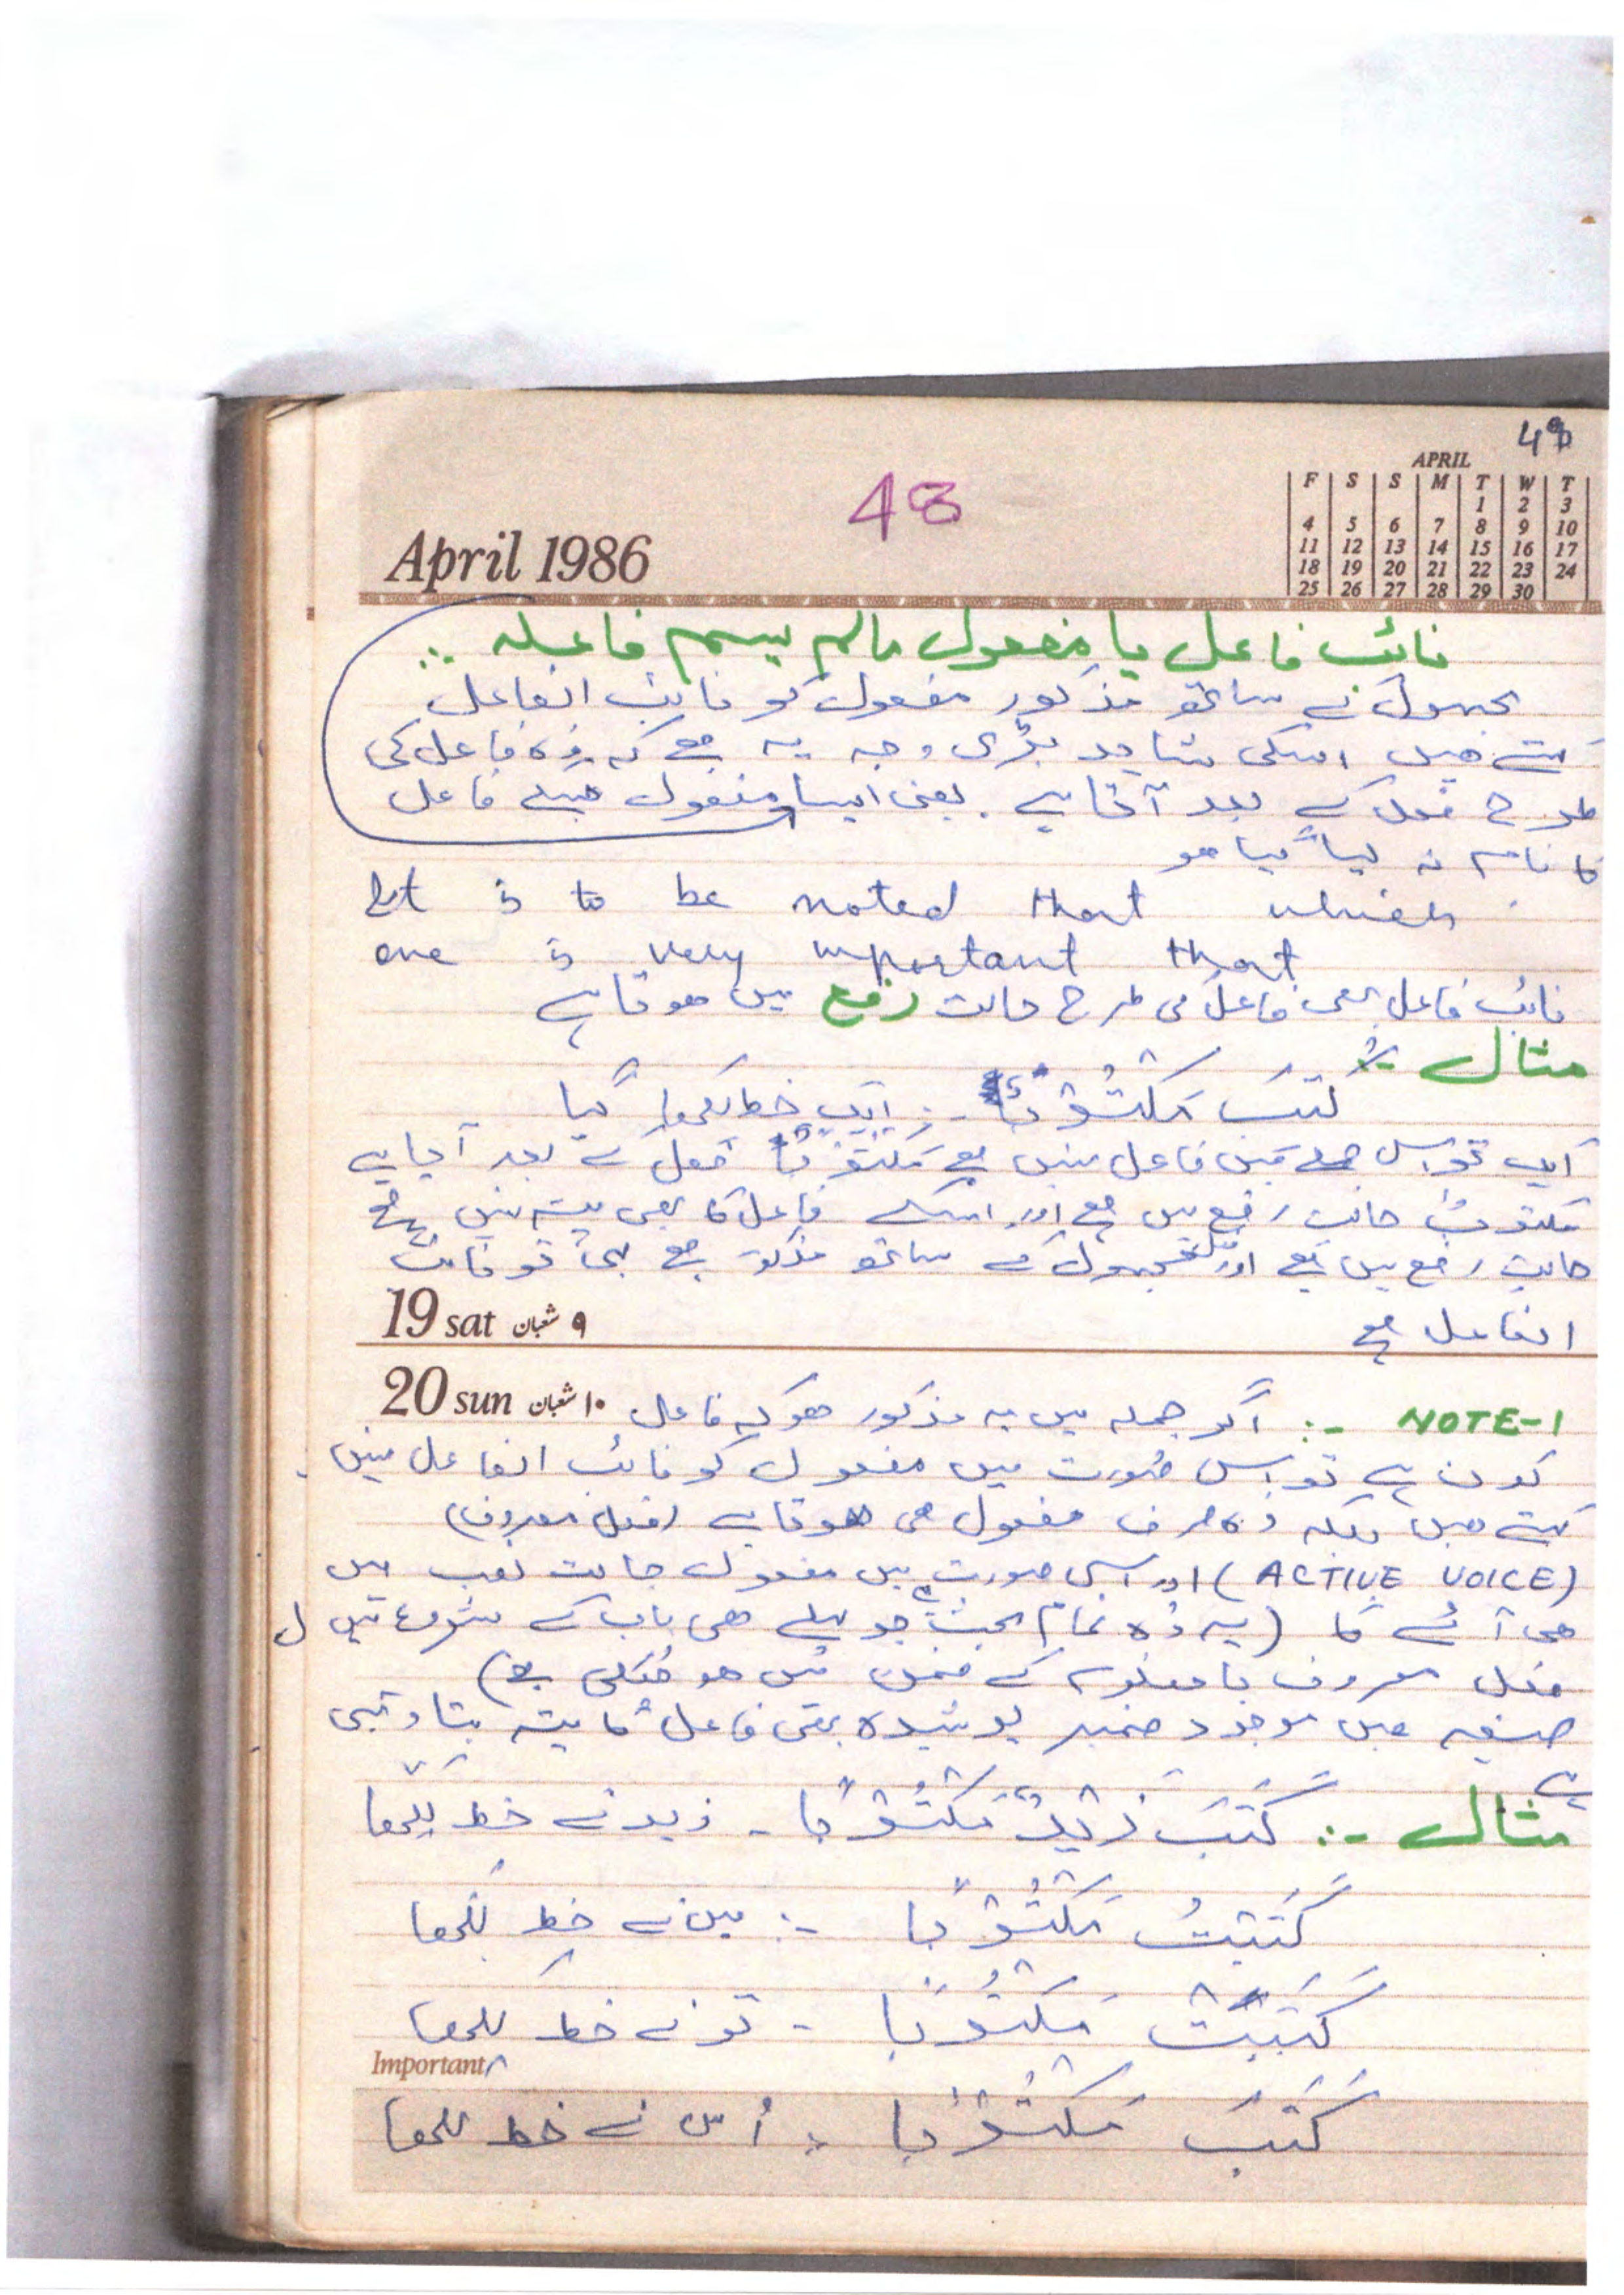 49
48
April 1986
APRIL
F S S M T W T
1 2 3
4 5 6 7 8 9 10
11 12 13 14 15 16 17
18 19 20 21 22 23 24
25 26 27 28 29 30
نائب فاعل یا مفعول مالم یسم فاعلہ :۔
مجہول کے ساتھ مذکور مفعول کو نائب الفاعل
کہتے ھیں اسکی شاید بڑی وجہ یہ ھے کہ وہ فاعل کی
طرح فعل کے بعد آتا ہے۔ یعنی ایسا مفعول جسکے فاعل
کا نام نہ لیا گیا ھو
It is to be noted that which
one is very important that
نائب فاعل بھی فاعل کی طرح حالت رفع میں ھوتا ہے
مثال :۔
کُتِبَ مَکْتُوْبٌ :۔ ایک خط لکھا گیا
ایک تو اس جملے میں فاعل نہیں ھے مَکْتُوْبٌ فعل کے بعد آیا ہے
مکتوبٌ حالت رفع میں ھے اور اسکے فاعل کا بھی پتہ نہیں ھے
حالت رفع میں ھے اور مجہول کے ساتھ مذکور ھے یہی تو نائب
الفاعل ھے
19 sat ۹ شعبان
20 sun ۱۰ شعبان
NOTE-1 :۔ اگر جملہ میں یہ مذکور ھو کہ فاعل
کون ہے تو اس صورت میں مفعول کو نائب الفاعل نہیں
کہتے ھیں بلکہ وہ صرف مفعول ھی ھوتا ہے (فعل معروف)
(ACTIVE VOICE) اور اسی صورت میں مفعول حالت نصب میں
ھی آئے گا (یہ وہ تمام بحث ہے جو پہلے ھی باب کے شروع میں
فعل معروف یا معلوم کے ضمن میں ھو چُکی ھے)
صیغہ میں موجود ضمیر پوشیدہ بھی فاعل کا پتہ بتا دیتی
ہے
مثال :۔ کَتَبَ زَیْدٌ مَکْتُوْبًا ۔ زید نے خط لکھا
کَتَبْتُ مَکْتُوْبًا :۔ میں نے خط لکھا
کَتَبْتَ مَکْتُوْبًا ۔ تو نے خط لکھا
Important
کَتَبَ مَکْتُوْبًا :۔ اُس نے خط لکھا